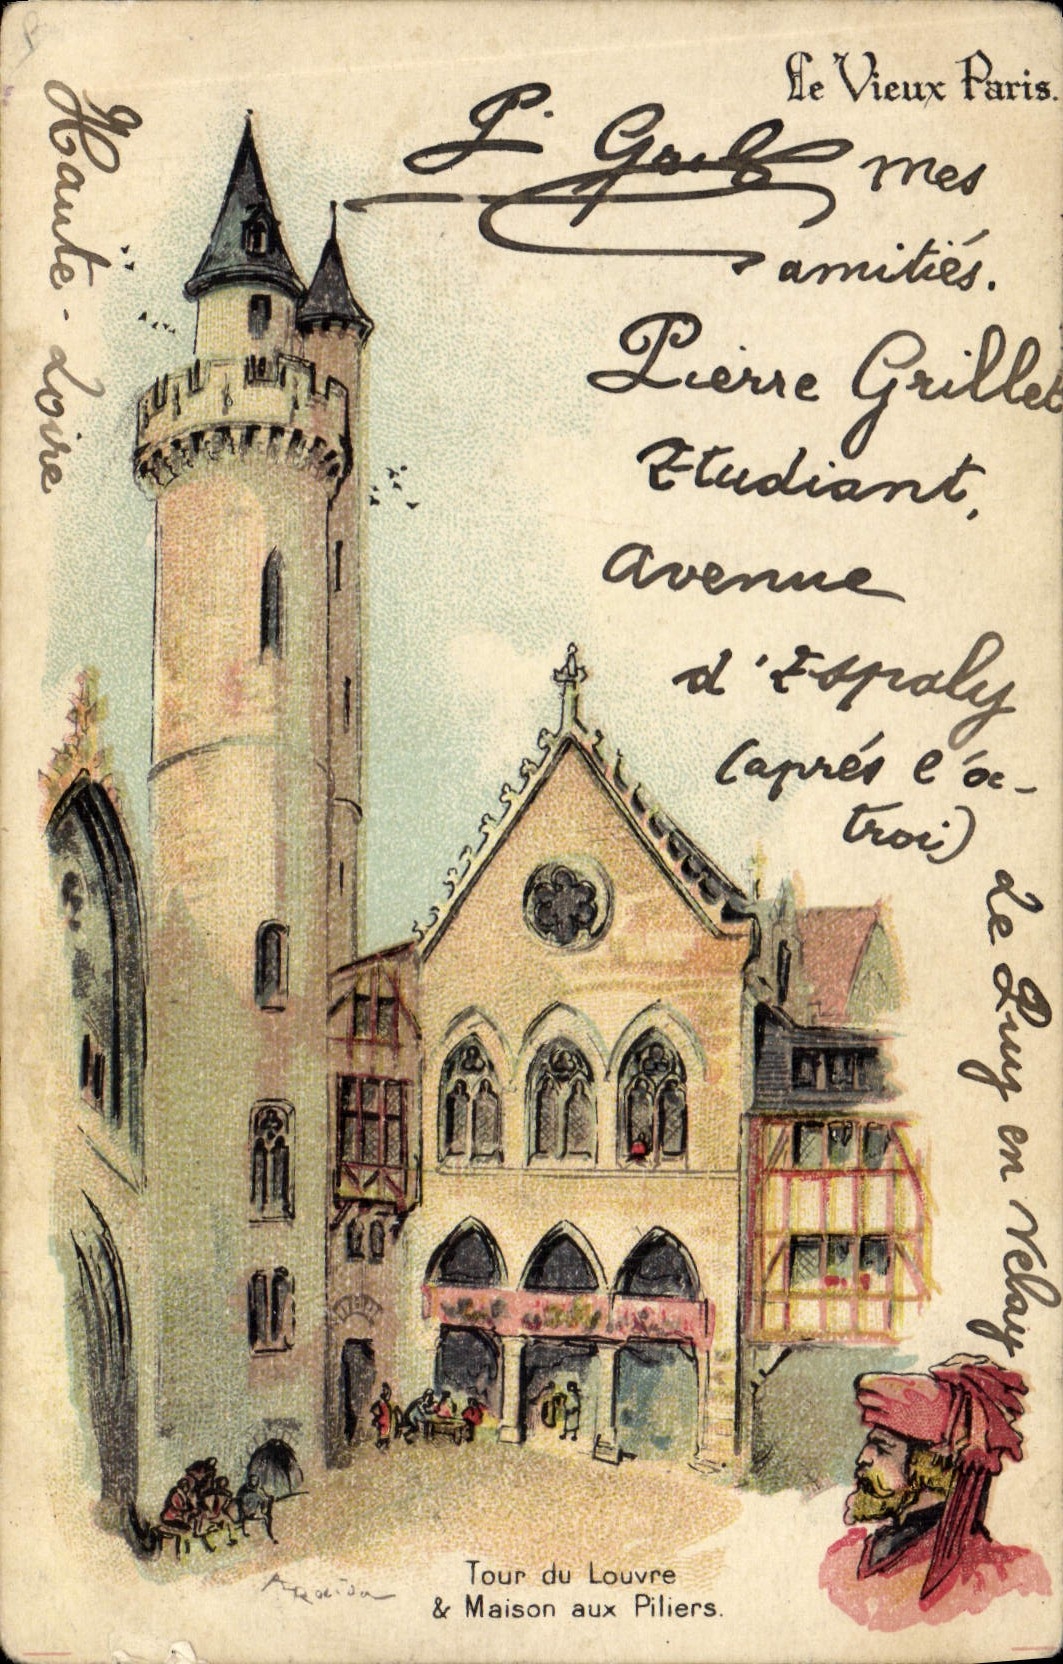 Le Vieux Paris.
P. mes
amitiés.
Pierre Grillet
Etudiant,
Avenue
d'Espaly
(aprés l'oc-
troi)
Le Puy en Velay
Haute-Loire
Tour du Louvre
& Maison aux Piliers.